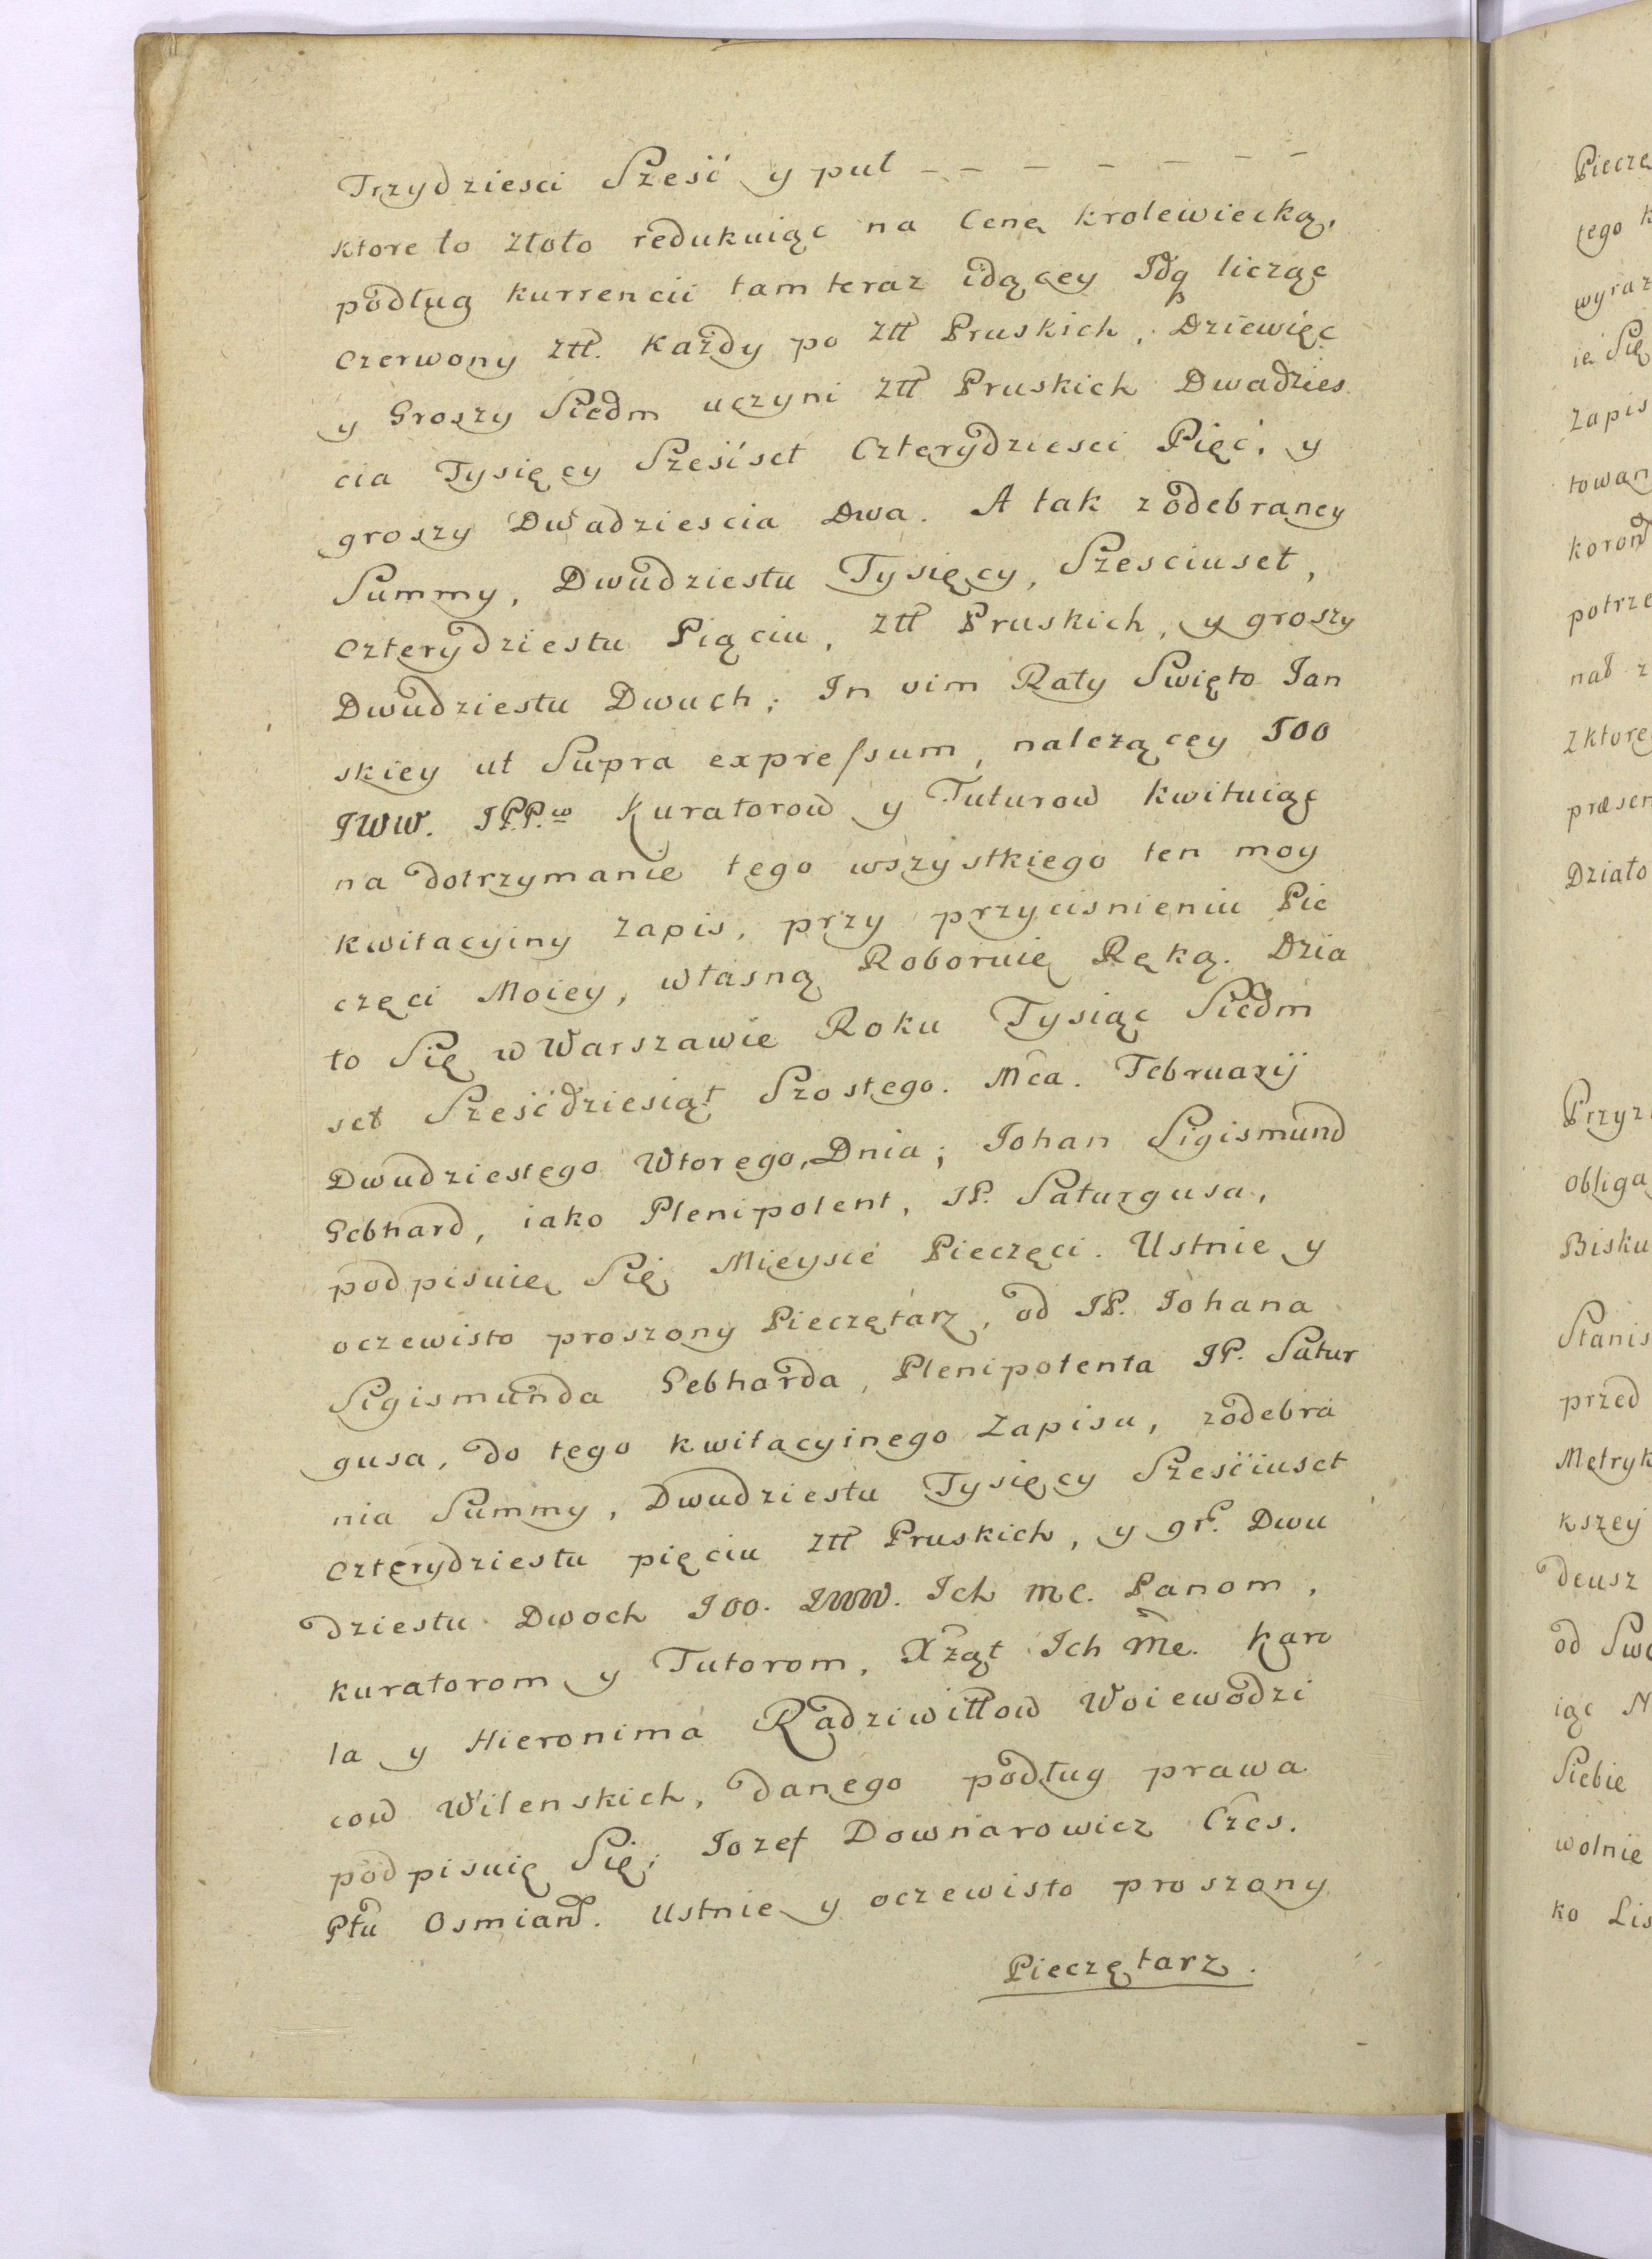 Trzydziesci Sześć y puł - - - - - - -
ktore to złoto redukuiąc na Cenę krolewiecką,
podług kurrencii tam teraz idącey Idq licząc
Czerwony Złł. Każdy po Złł Pruskich, Dziewięć
y Groszy Siedm uczyni Złł Pruskich Dwadzies
cia Tysięcy Sześćset Czterydziesci Pięć, y
groszy Dwadziescia Dwa. A tak z odebraney
Summy, Dwudziestu Tysięcy, Szesciuset,
Czterydziestu Piąciu, Złł Pruskich, y groszy
Dwudziestu Dwuch; In vim Raty Swięto Jan
skiey ut Supra expressum, należącey JOO
JWW. JPP.w Kuratorow y Tuturow kwituiąc
na dotrzymanie tego wszystkiego ten moy
kwitacyiny zapis, przy przycisnieniu Pie
częci Moiey, własną Roboruię Ręką. Dzia
ło Się w Warszawie Roku Tysiąc Siedm
set Sześćdziesiąt Szostego. Mca. Februarij
Dwudziestego Wtorego, Dnia; Johan Sigismund
Gebhard, iako Plenipotent, JP. Saturgusa,
podpisuię Się, Mieysce Pieczęci. Ustnie y
oczewisto proszony Pieczętarz, od JP. Johana
Sigismunda Gebharda, Plenipotenta JP. Satur
gusa, do tego kwitacyinego Zapisu, z odebra
nia Summy, Dwudziestu Tysięcy Sześciuset
Czterydziestu pięciu Złł Pruskich, y gr. Dwu
dziestu Dwoch JOO. JWW. Ich mc. Panom,
kuratorom y Tutorom, Xżąt Ich Mc. Karo
la y Hieronima Radziwiłłow Woiewodzi
cow Wilenskich, danego podług prawa
podpisuię Się; Jozef Downarowicz Czes.
Pttu Osmian. Ustnie y oczewisto proszony
Pieczętarz.
Pieczę
tego k
wyraz
ię Się
Zapis
towan
koron
potrze
nad z
z ktore
præsen
Działo
Przyzn
obliga
Bisku
Stanis
przed
Metryk
kszey
deusz
od Swe
iąc N
Siebie
wolnie
ko Lis